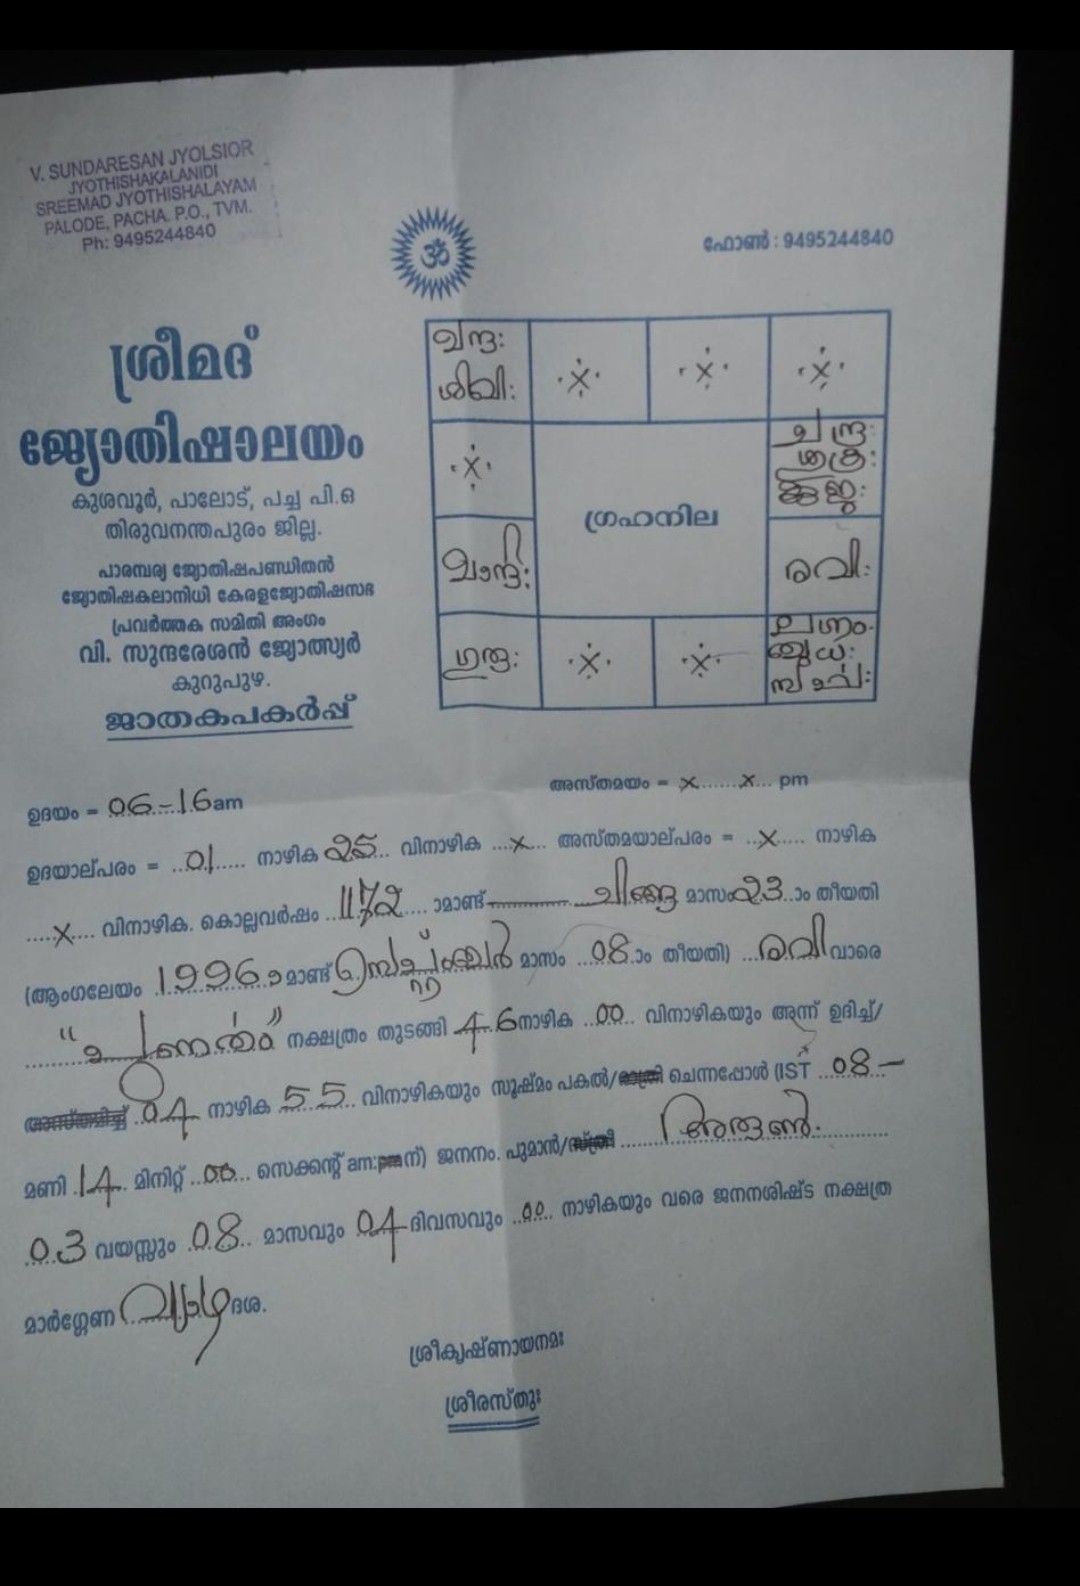 V. SUNDARESAN JYOLSIOR
JYOTHISHAKALANIDI
SREEMAD JYOTHISHALAYAM
PALODE, PACHA. P.O., TVM.
Ph: 9495244840
ॐ
ഫോൺ : 9495244840
ശ്രീമദ്
ജ്യോതിഷാലയം
കുശവൂർ, പാലോട്, പച്ച പി.ഒ
തിരുവനന്തപുരം ജില്ല.
പാരമ്പര്യ ജ്യോതിഷപണ്ഡിതൻ
ജ്യോതിഷകലാനിധി കേരളജ്യോതിഷസഭ
പ്രവർത്തക സമിതി അംഗം
വി. സുന്ദരേശൻ ജ്യോത്സ്യർ
കുറുപുഴ.
ജാതകപകർപ്പ്
ശിഖി:
x x x
ചന്ദ്ര:
ശുക്ര:
കുജ:
x
ഗ്രഹനില
രവി:
ഗുരു:
x x
ലഗ്നം.
ബുധ:
ഉദയം = 06-16 am
അസ്തമയം = x ...... x ... pm
ഉദയാല്പരം = ..01..... നാഴിക 25... വിനാഴിക ....x... അസ്തമയാല്പരം = ..x..... നാഴിക
.....x.... വിനാഴിക. കൊല്ലവർഷം ..1172.... ാമാണ്ട് ............ ചിങ്ങ മാസം 23..ാം തീയതി
(ആംഗലേയം .1996.ാമാണ്ട് സെപ്തംബർ മാസം ..08.ാം തീയതി) ...രവി വാരെ
"പുണർതം" നക്ഷത്രം തുടങ്ങി 46 നാഴിക ..00... വിനാഴികയും അന്ന് ഉദിച്ച്/
അസ്തമിച്ച് .04.. നാഴിക 55.. വിനാഴികയും സൂഷ്മം പകൽ/രാത്രി ചെന്നപ്പോൾ (IST ..08.–
മണി .14. മിനിറ്റ് ..00... സെക്കന്റ് am:pmന്) ജനനം. പുമാൻ/സ്ത്രീ ..... അരുൺ. ........
.03 വയസ്സും .08.. മാസവും 04 ദിവസവും ..00.. നാഴികയും വരെ ജനനശിഷ്ട നക്ഷത്ര
മാർഗ്ഗേണ വ്യാഴ ദശ.
ശ്രീകൃഷ്ണായനമഃ
ശ്രീരസ്തുഃ